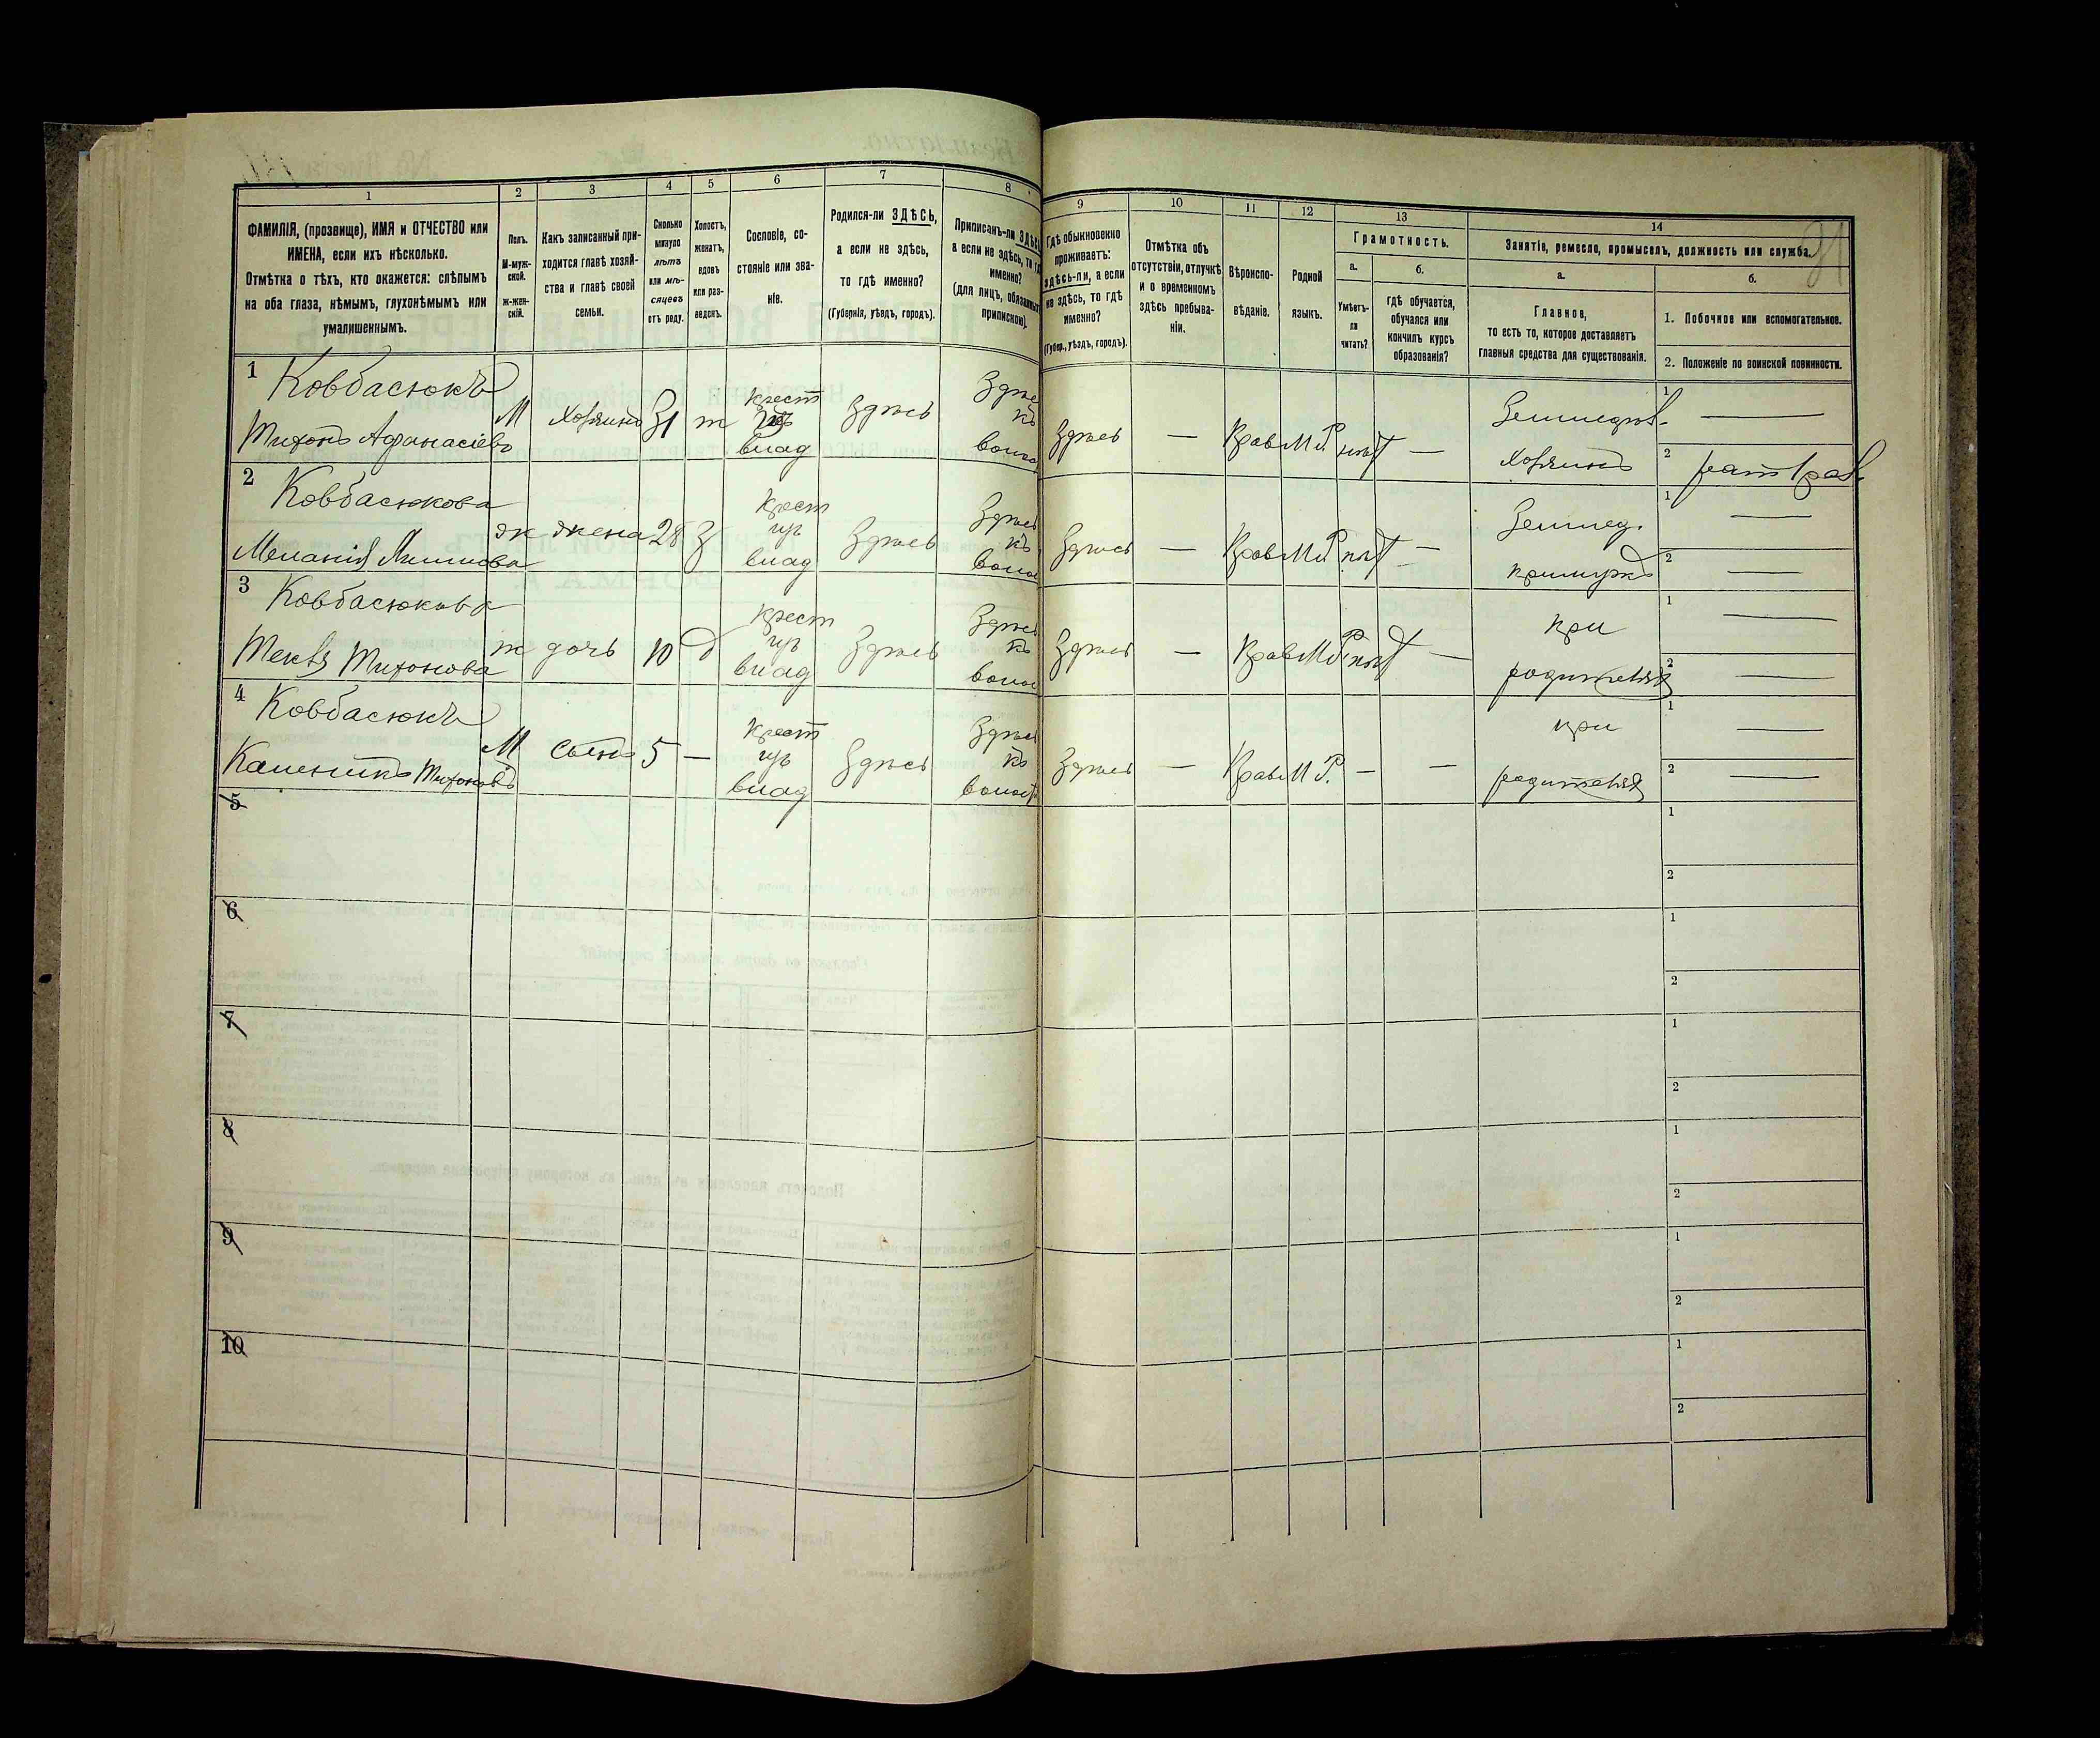 1 2 3 4 5 6 7 8
ФАМИЛІЯ, (прозвище), ИМЯ и ОТЧЕСТВО или
ИМЕНА, если ихъ нѣсколько.
Отмѣтка о тѣхъ, кто окажется: слѣпымъ
на оба глаза, нѣмымъ, глухонѣмымъ или
умалишеннымъ.
Полъ.
М-муж-
ской.
ж-жен-
скій.
Какъ записанный при-
ходится главѣ хозяй-
ства и главѣ своей
семьи.
Сколько
минуло
лѣтъ
или мѣ-
сяцевъ
отъ роду.
Холостъ,
женатъ,
вдовъ
или раз-
веденъ.
Сословіе, со-
стояніе или зва-
ніе.
Родился-ли ЗДѢСЬ,
а если не здѣсь,
то гдѣ именно?
(Губернія, уѣздъ, городъ).
Приписанъ-ли ЗДѢСЬ,
а если не здѣсь, то гдѣ
именно?
(для лицъ, обязанныхъ
припискою).
9 10 11 12 13 14
Гдѣ обыкновенно
проживаетъ:
здѣсь-ли, а если
не здѣсь, то гдѣ
именно?
(Губер., уѣздъ, городъ).
Отмѣтка объ
отсутствіи, отлучкѣ
и о временномъ
здѣсь пребыва-
ніи.
Вѣроиспо-
вѣданіе.
Родной
языкъ.
Грамотность.
а.
Умѣетъ-
ли
читать?
б.
гдѣ обучается,
обучался или
кончилъ курсъ
образованія?
Занятіе, ремесло, промыселъ, должность или служба.
а.
Главное,
то есть то, которое доставляетъ
главныя средства для существованія.
б.
1. Побочное или вспомогательное.
2. Положеніе по воинской повинности.
1 Ковбасюкъ
Тихонъ Афанасіевъ М Хозяинъ 31 ж Крест влад Здѣсь Здѣсь къ волос Здѣсь — Прав М Р нѣт — Земледѣл. Хозяинъ 1 — 2
2 Ковбасюкова
Меланія ж жена 28 З Крест изъ влад Здѣсь Здѣсь къ волос Здѣсь — Прав М Р нѣт — Землед. при мужѣ 1 — 2 —
3 Ковбасюкова
Текля Тихонова ж дочь 10 д Крест изъ влад Здѣсь Здѣсь къ волос Здѣсь — Прав М Р нѣт — при родителях 1 — 2 —
4 Ковбасюкъ
Каленикъ Тихоновъ М Сынъ 5 — Крест изъ влад Здѣсь Здѣсь къ волост Здѣсь — Прав М Р. — — при родителях 1 — 2 —
5 1 2
6 1 2
7 1 2
8 1 2
9 1 2
10 1 2